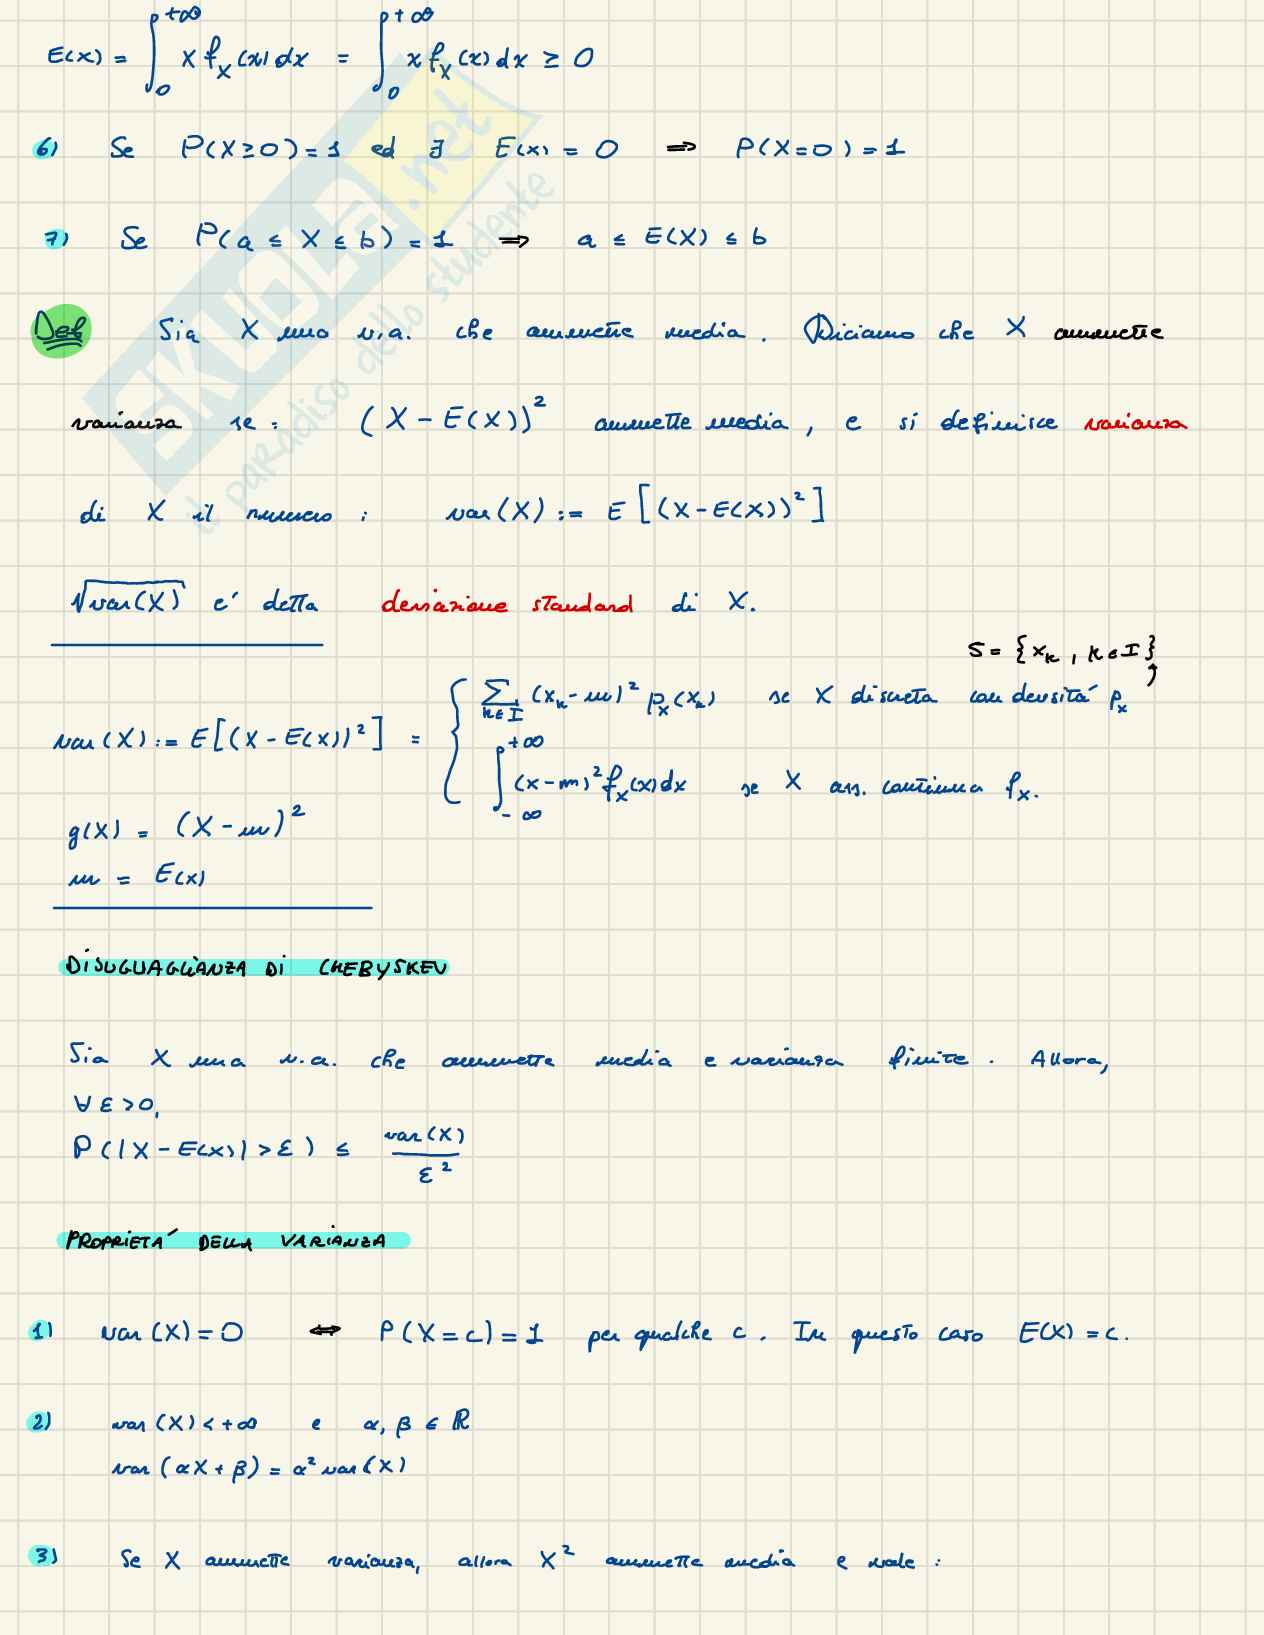 E(x) = ∫₀^{+∞} x f_X(x) dx = ∫₀^{+∞} x f_X(x) dx ≥ 0
6) Se P(X≥0)=1 ed ∃ E(x) = 0 ⇒ P(X=0)=1
7) Se P(a ≤ X ≤ b) = 1 ⇒ a ≤ E(X) ≤ b
Def Sia X una v.a. che ammette media. Diciamo che X ammette
varianza se: (X - E(X))² ammette media, e si definisce varianza
di X il numero : var(X) := E[(X-E(X))²]
√var(X) e' detta deviazione standard di X.
S = {x_k, k∈I}
var(X) := E[(X-E(X))²] = { ∑_{k∈I} (x_k-m)² p_X(x_k) se X discreta con densitá p_X
∫_{-∞}^{+∞} (x-m)² f_X(x) dx se X ass. continua f_X.
g(X) = (X-m)²
m = E(x)
DISUGUAGLIANZA DI CHEBYSKEV
Sia X una v.a. che ammette media e varianza finite. Allora,
∀ε>0,
P(|X-E(x)|>ε) ≤ var(X)/ε²
PROPRIETÁ DELLA VARIANZA
1) var(X)=0 ⇔ P(X=c)=1 per qualche c. In questo caso E(X)=c.
2) var(X)<+∞ e α, β ∈ ℝ
var(αX+β) = α² var(X)
3) Se X ammette varianza, allora X² ammette media e vale :
SKUOLA.net
il paradiso dello studente